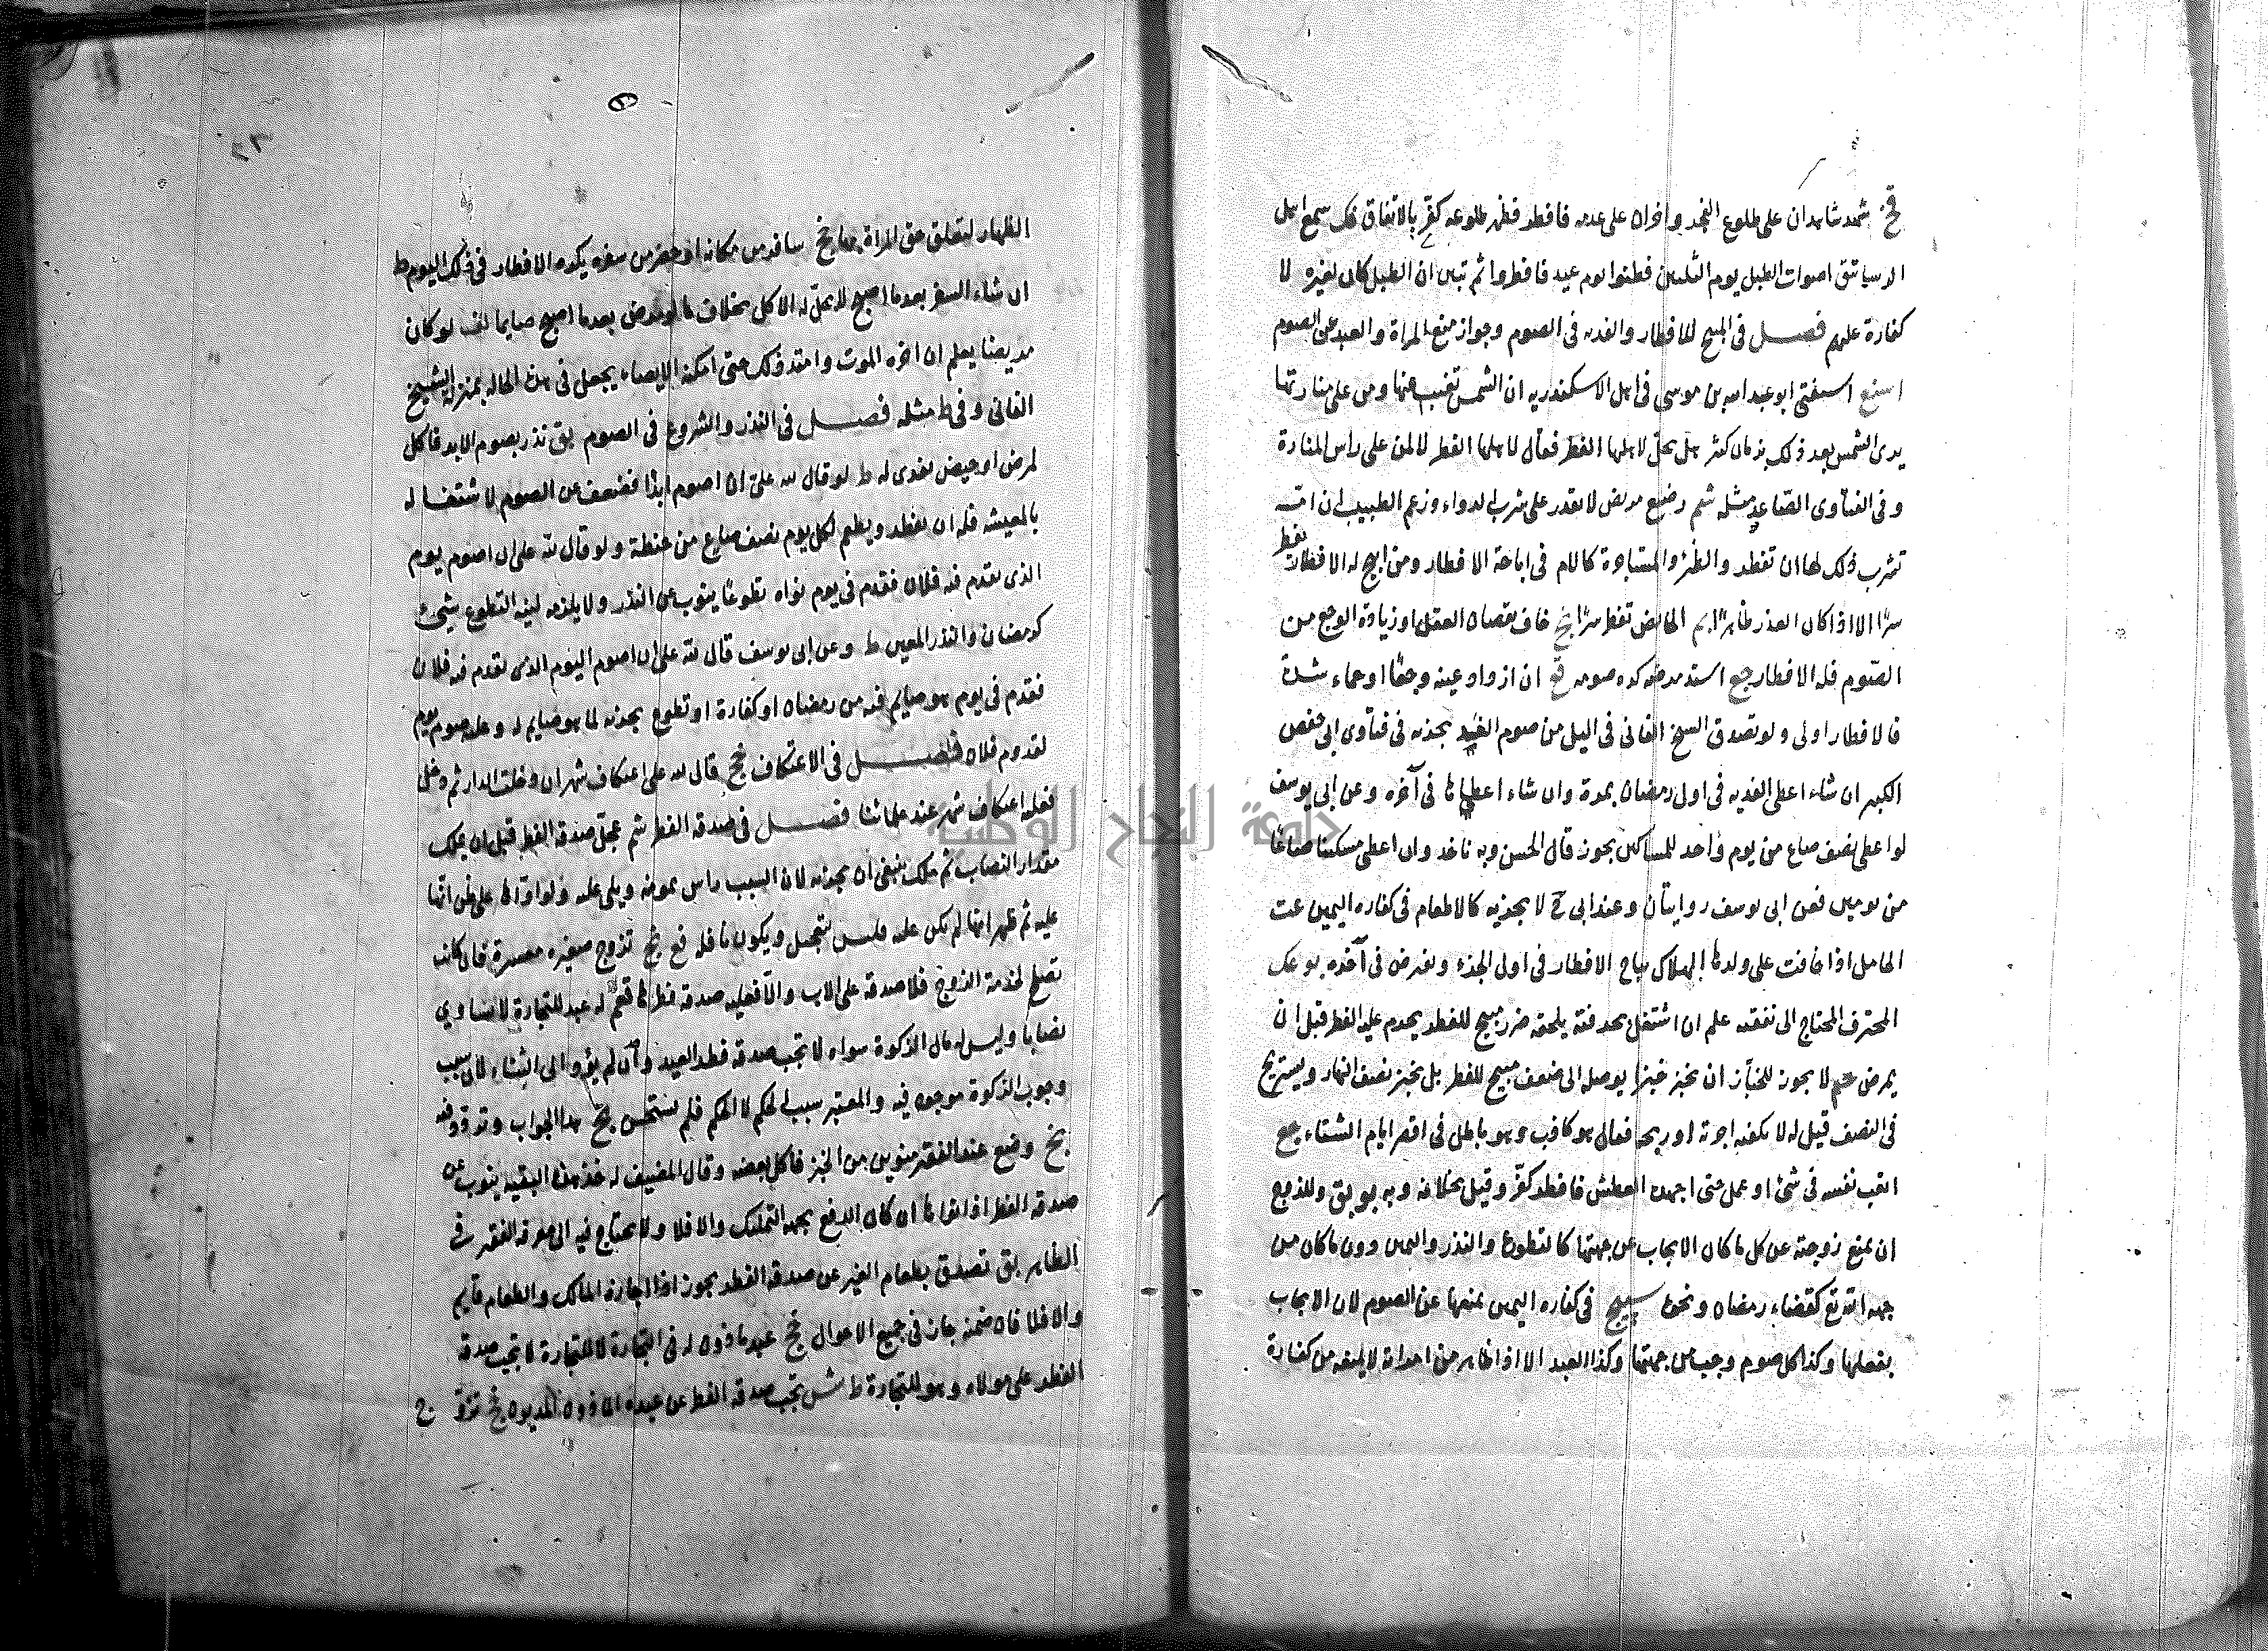 قخ شهد شاهدان على طلوع الفجر واخران على عدمه فافطر فظهر طلوعه كفر بالاتفاق فك سمع اهل
الرسياتق اصوات الطبل يوم الثلثين فظنوا يوم عيد فافطروا ثم تبين ان الطبل كان لغيره لا
كفارة عليهم فصل في المبيح للافطار والفديه في الصوم وجواز منع المراة والعبد عن الصوم
استفتى ابو عبد الله بن موسى في اهل الاسكندريه ان الشمس تغيب عنها ومن على منارتها
يرى الشمس بعد ذلك بزمان كثير هل يحل لاهلها الفطر فقال لاهلها الفطر لا لمن على راس المنارة
وفي الفتاوى مثله شم رضيع مريض لا يقدر على شرب الدواء وزعم الطبيب ان امه
تشرب ذلك لها ان تفطر والظئر والمستاجرة كالام في اباحة الافطار ومن ابيح له الافطار يفطر
سرا الا اذا كان العذر ظاهرا الحايض تفطر سرا بخ خاف نقصان العقل او زيادة الوجع من
الصوم فله الافطار جع اشتد مرضه كره صومه قع ان ازداد عينه وجعا او حماء شدة
فالافطار اولى ولو تصدق الشيخ الفاني في اليل من صوم الغد يجزيه في فتاوى ابي حفص
الكبير ان شاء اعطى الفديه في اول رمضان بمرة وان شاء اعطاها في آخره وعن ابي يوسف
لو اعطى نصف صاع من يوم واحد للمساكين يجوز قال الحسن وبه ناخذ وان اعطى مسكينا صاعا
من يومين فعن ابي يوسف روايتان وعند ابي ح لا يجزيه كالاطعام في كفاره اليمين عت
الحامل اذا خافت على ولدها الهلاك يباح الافطار في اول الجزء ويفرض في آخره
المحترف المحتاج الى نفقته علم ان اشتغل بحرفته يلحقه ضرر مبيح للفطر يحرم عليه الفطر قبل ان
يمرض لا يجوز للخباز ان يخبز خبزا يوصله الى ضعف مبيح للفطر بل يخبز نصف النهار ويستريح
في النصف قيل له لا يكفيه اجرته او ربحه فقال هو كاذب وهو باطل في اقصر ايام الشتاء جع
اتعب نفسه في شئ او عمل حتى اجهده العطش فافطر كفر وقيل بخلافه وبه بق وللزوج
ان يمنع زوجته عن كل ما كان الايجاب عن جهتها كالتطوع والنذر واليمين دون ما كان من
جهه الله تع كقضاء رمضان ونحوه في كفاره اليمين يمنعها عن الصوم لان الايجاب
بفعلها وكذا كل صوم وجب من جهتها وكذا العبد الا اذا ظاهر من امراته لا يمنعه من كفارة
الظهار لتعلق حق المراة بها بخ سافر من مكانه او حضر من سفره يكره الافطار في ذلك اليوم ط
ان شاء السفر بعدما اصبح لا يحل له الاكل بخلاف ما لو مرض بعدما اصبح صايما لو كان
مريضا يعلم ان اخره الموت وامتد ذلك حتى امكنه الايصاء يجعل في هذه الحاله بمنزلة الشيخ
الفاني وفي ط مثله فصل في النذر والشروع في الصوم بق نذر بصوم الابد فاكل
لمرض او حيض يفدي له ط لو قال لله علي ان اصوم ابدا فضعف عن الصوم لاشتغاله
بالمعيشه فله ان يفطر ويطعم لكل يوم نصف صاع من حنطة ولو قال لله علي ان اصوم يوم
الذي يقدم فيه فلان فقدم في يوم نواه تطوعا ينوب عن النذر ولا يلزمه لنيه التطوع شئ
كرمضان والنذر المعين ط وعن ابي يوسف قال لله علي ان اصوم اليوم الذي يقدم فيه فلان
فقدم في يوم هو صايم فيه من رمضان او كفارة او تطوع يجزيه لما هو صايم له وعليه صوم يوم
لقدوم فلان فصل في الاعتكاف قال لله علي اعتكاف شهر ان دخلت الدار ثم دخل
فعليه اعتكاف شهر عند علمائنا فصل في صدقه الفطر شم عجل صدقه الفطر قبل ان يملك
مقدار النصاب ثم ملك ينبغي ان يجزيه لان السبب راس يمونه ويلي عليه ولو اداها على ظن انها
عليه ثم ظهر انها لم تكن عليه فليس بتعجيل ويكون نافله قع بخ تزوج صغيره معسرة فان كانت
تصلح لخدمة الزوج فلا صدقه على الاب والا فعليه صدقه فطرها له عبد للتجارة لا يساوي
نصابا وليس له مال الزكوة سواه لا تجب صدقه فطر العبد وان لم يؤد الى الثناء لان سبب
وجوب الزكوة موجود فيه والمعتبر سبب الحكم لا الحكم فلم يستحسن بخ هذا الجواب وتوقف فيه
بخ وضع عند الفقير منوين من الخبز فاكل بعضه وقال المضيف له خذ هذه البقيه ينوب عن
صدقه الفطر اذا نواها ان كان الدفع بجهه التمليك والا فلا ولا يحتاج فيه الى معرفه الفقير في
الظاهر بق تصدق بطعام الغير عن صدقه الفطر يجوز اذا اجازه المالك والطعام قايم
والا فلا فان ضمنه جاز في جميع الاحوال عبد ماذون له في التجارة لا للتجارة لا تجب صدقه
الفطر على مولاه وهو للتجارة ط شس تجب صدقه الفطر عن عبده الماذون المديون بخ
جامعة النجاح الوطنية